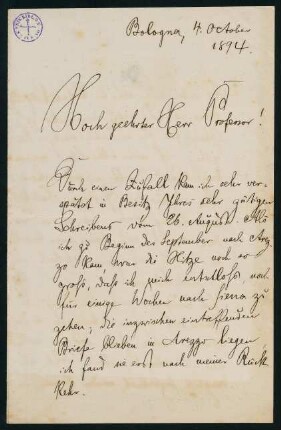 Bologna, 4. October
1894.
Hoch geehrter Herr Professor!
Durch einen Zufall kam ich sehr ver-
spätet in Besitz Ihres sehr gütigen
Schreibens vom 26. August. Als
ich zu Beginn des September nach Arez-
zo kam war die Hitze noch so
groß, daß ich mich entschloß noch
für einige Wochen nach Siena zu
gehen; die inzwischen eintreffenden
Briefe blieben in Arezzo liegen,
ich fand sie erst nach meiner Rück
kehr.